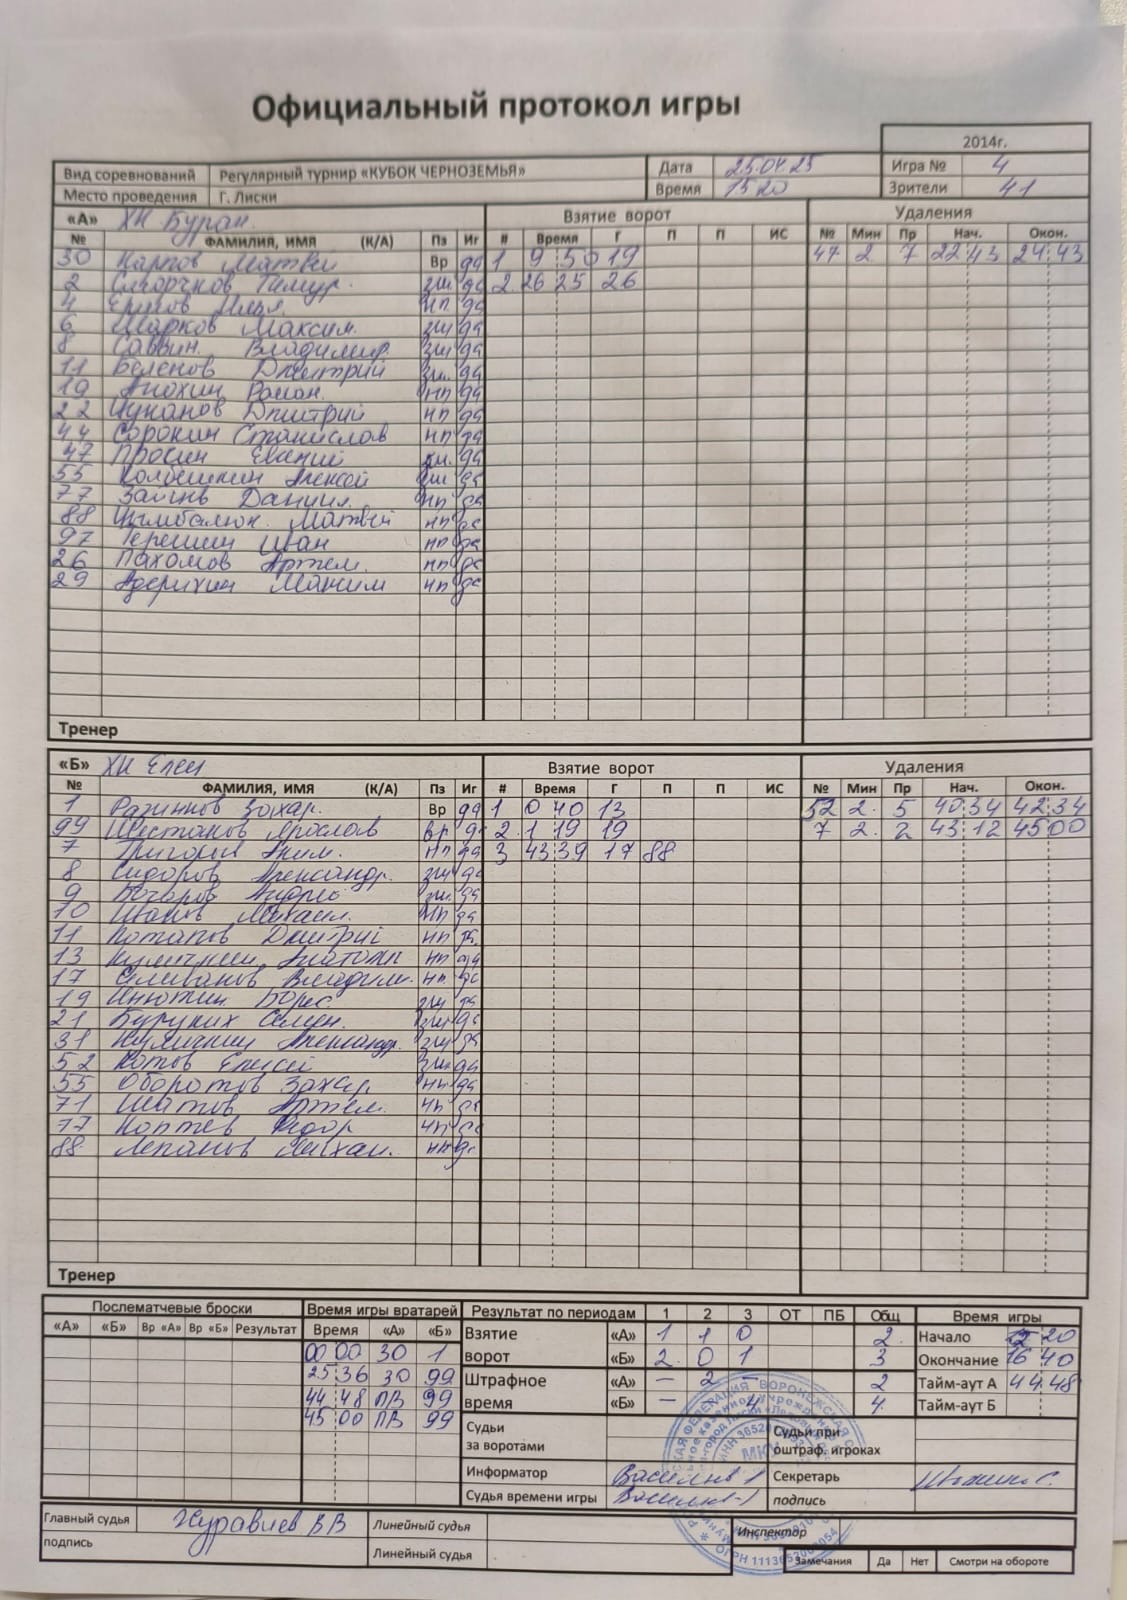 Официальный протокол игры
2014г.
Вид соревнований Регулярный турнир «КУБОК ЧЕРНОЗЕМЬЯ» Дата 25.04.25 Игра № 4
Место проведения Г. Лиски Время 15 20 Зрители 41
«А» ХК Буран Взятие ворот Удаления
№ ФАМИЛИЯ, ИМЯ (К/А) Пз Иг # Время Г П П ИС № Мин Пр Нач. Окон.
30 Карпов Матвей Вр да 1 9 50 19 47 2 7 22 43 24 43
2 Тимур. зщ да 2 26 25 26
4 Илья. нп да
6 Шарков Максим. зщ да
8 Саввин. Владимир зщ да
11 Беленов Дмитрий зщ. да
19 Анохин Роман. нп да
22 Цуканов Дмитрий нп да
44 Сорокин Станислав нп да
47 Просин Евгений зщ. да
55 Колбешкин Алексей зщ да
77 Даниил. нп да
88 Цымбалюк. Матвей нп да
97 Терешин Иван нп да
26 Пахомов Артем. нп да
29 Адерихин Максим нп да
Тренер
«Б» ХК Елец Взятие ворот Удаления
№ ФАМИЛИЯ, ИМЯ (К/А) Пз Иг # Время Г П П ИС № Мин Пр Нач. Окон.
1 Разинков Захар. Вр да 1 0 40 13 52 2. 5 40 34 42 34
99 Шестаков Ярослав Вр да 2. 1 19 19 7 2. 2 43 12 45 00
7 Григорьев Аким. нп да 3 43 39 17 88
8 Сидоров Александр. зщ да
9 Бочаров Андрей зщ. да
10 Иванов Михаил. нп да
11 Потапов Дмитрий нп да
13 Куличкин Анатолий нп да
17 Селиванов Владим. нп да
19 Инютин Борис зщ да
21 Буруких Семен. зщ да
31 Куличкин Александр. зщ да
52 Котов Елисей зщ да
55 Оборотов Захар нп да
71 Шатов Артем. нп да
77 Коптев Федор нп да
88 Лепанов Михаил. нп да
Тренер
Послематчевые броски Время игры вратарей Результат по периодам 1 2 3 ОТ ПБ Общ Время игры
«А» «Б» Вр «А» Вр «Б» Результат Время «А» «Б» Взятие «А» 1 1 0 2. Начало 15 20
00 00 30 1 ворот «Б» 2. 0 1 3 Окончание 16 40
25 36 30 99 Штрафное «А» — 2 — 2 Тайм-аут А 44 48
44 48 ПВ 99 время «Б» — 4 4. Тайм-аут Б
45 00 ПВ 99 Судьи за воротами Судьи при оштраф. игроках
Информатор Секретарь
Судья времени игры подпись
Главный судья Журавлев В В Линейный судья Инспектор
подпись Линейный судья Замечания Да Нет Смотри на обороте